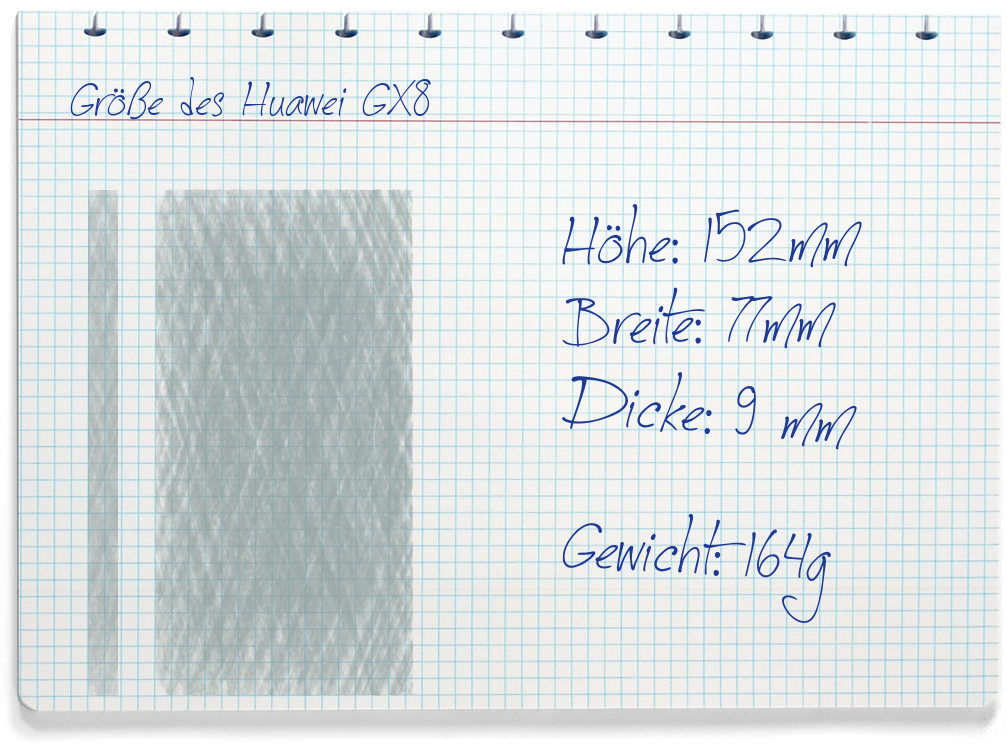 Größe des Huawei GX8
Höhe: 152mm
Breite: 77mm
Dicke: 9 mm
Gewicht: 164g